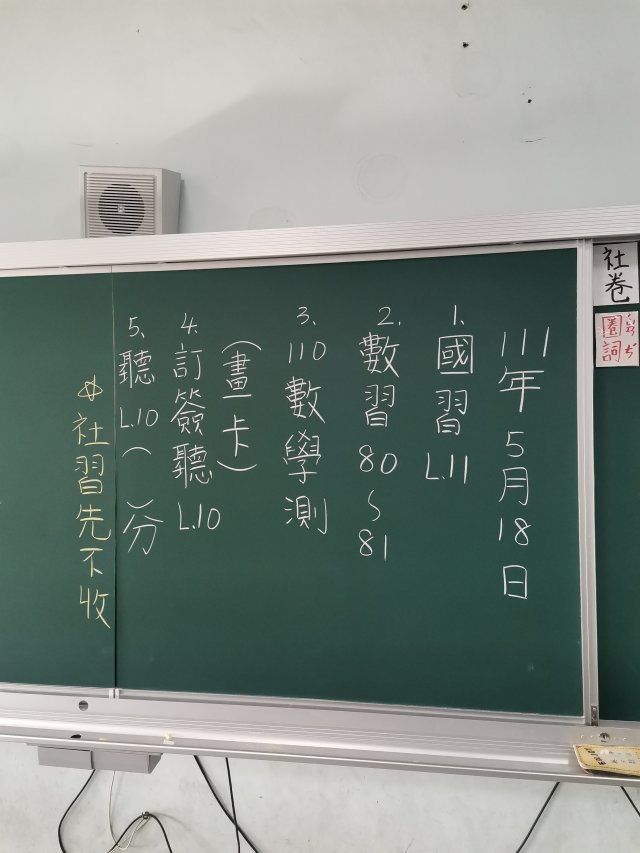 社卷
圈詞
111年5月18日
1.國習L.11
2.數習80~81
3.110數學測
(畫卡)
4.訂簽聽L.10
5.聽L.10( )分
社習先不收